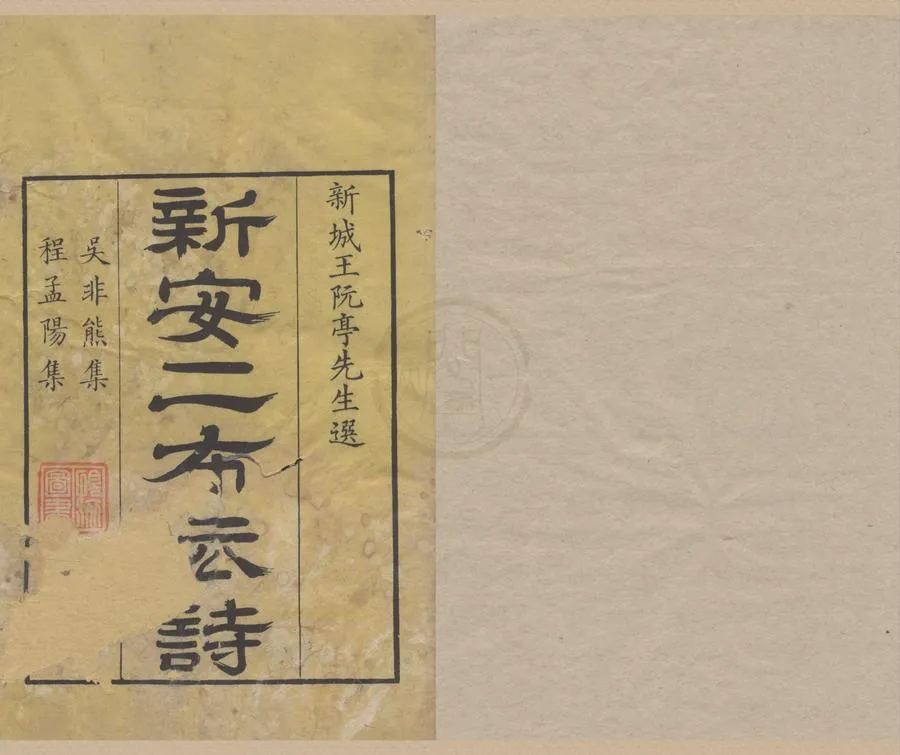 新城王阮亭先生選
新安二布云詩
吳非熊集
程孟陽集